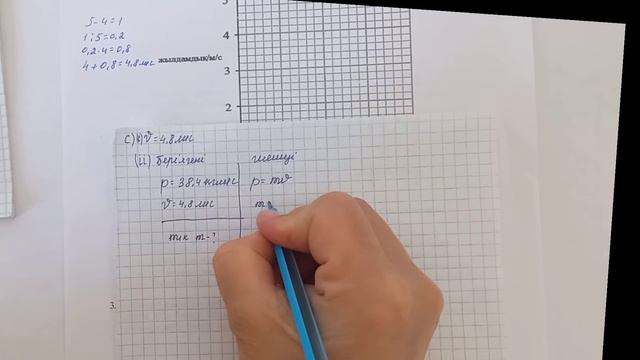 5-4=1
1:5=0,2
0,2·4=0,8
4+0,8=4,8 м/с
жылдамдық/м/с
5
4
3
2
c)(i) v=4,8 м/с
(ii) берілгені шешуі
p=38,4 кг м/с p=mv
v=4,8 м/с m
т/к m-?
3.